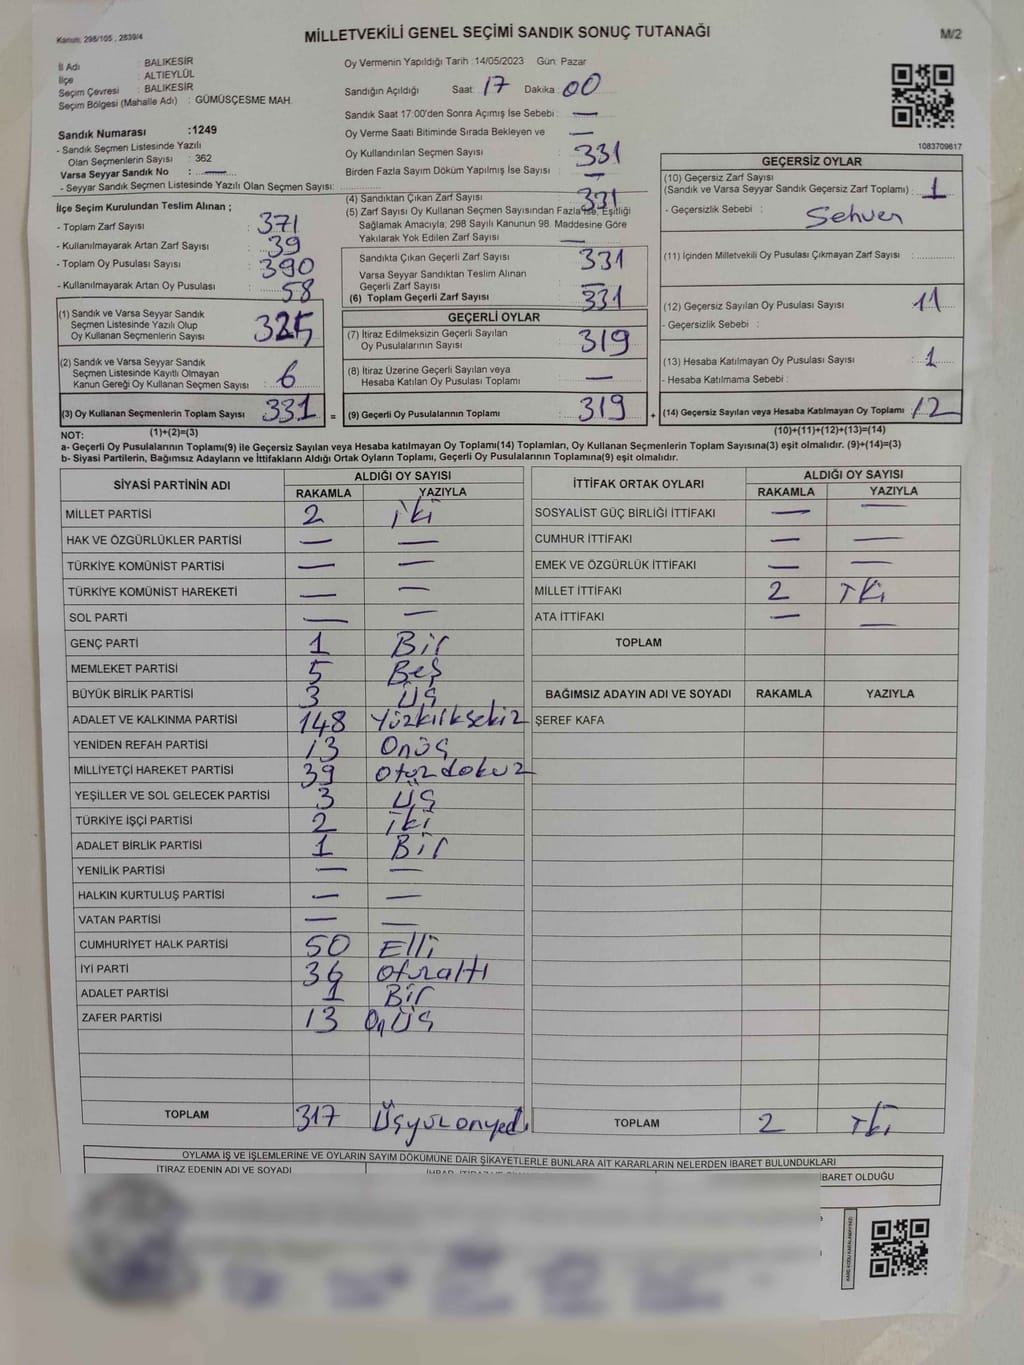 Kanun: 298/105 , 2839/4
MİLLETVEKİLİ GENEL SEÇİMİ SANDIK SONUÇ TUTANAĞI
M/2
İl Adı : BALIKESİR
İlçe : ALTIEYLÜL
Seçim Çevresi : BALIKESİR
Seçim Bölgesi (Mahalle Adı) : GÜMÜŞÇESME MAH.
Sandık Numarası :1249
- Sandık Seçmen Listesinde Yazılı
Olan Seçmenlerin Sayısı : 362
Varsa Seyyar Sandık No : —
- Seyyar Sandık Seçmen Listesinde Yazılı Olan Seçmen Sayısı:
Oy Vermenin Yapıldığı Tarih :14/05/2023 Gün: Pazar
Sandığın Açıldığı Saat: 17 Dakika: 00
Sandık Saat 17:00'den Sonra Açımış İse Sebebi : —
Oy Verme Saati Bitiminde Sırada Bekleyen ve —
Oy Kullandırılan Seçmen Sayısı : 331
Birden Fazla Sayım Döküm Yapılmış İse Sayısı : —
1083709617
İlçe Seçim Kurulundan Teslim Alınan ;
- Toplam Zarf Sayısı : 371
- Kullanılmayarak Artan Zarf Sayısı : 39
- Toplam Oy Pusulası Sayısı : 390
- Kullanılmayarak Artan Oy Pusulası : 58
(1) Sandık ve Varsa Seyyar Sandık
Seçmen Listesinde Yazılı Olup
Oy Kullanan Seçmenlerin Sayısı : 325
(2) Sandık ve Varsa Seyyar Sandık
Seçmen Listesinde Kayıtlı Olmayan
Kanun Gereği Oy Kullanan Seçmen Sayısı : 6
(3) Oy Kullanan Seçmenlerin Toplam Sayısı : 331 =
(1)+(2)=(3)
(4) Sandıktan Çıkan Zarf Sayısı : 331
(5) Zarf Sayısı Oy Kullanan Seçmen Sayısından Fazla İse, Eşitliği
Sağlamak Amacıyla; 298 Sayılı Kanunun 98. Maddesine Göre
Yakılarak Yok Edilen Zarf Sayısı : —
Sandıkta Çıkan Geçerli Zarf Sayısı : 331
Varsa Seyyar Sandıktan Teslim Alınan
Geçerli Zarf Sayısı : —
(6) Toplam Geçerli Zarf Sayısı : 331
GEÇERLİ OYLAR
(7) İtiraz Edilmeksizin Geçerli Sayılan
Oy Pusulalarının Sayısı : 319
(8) İtiraz Üzerine Geçerli Sayılan veya
Hesaba Katılan Oy Pusulası Toplamı : —
(9) Geçerli Oy Pusulalarının Toplamı : 319 +
GEÇERSİZ OYLAR
(10) Geçersiz Zarf Sayısı
(Sandık ve Varsa Seyyar Sandık Geçersiz Zarf Toplamı) : 1
- Geçersizlik Sebebi : Sehven
(11) İçinden Milletvekili Oy Pusulası Çıkmayan Zarf Sayısı :
(12) Geçersiz Sayılan Oy Pusulası Sayısı : 11
- Geçersizlik Sebebi :
(13) Hesaba Katılmayan Oy Pusulası Sayısı : 1
- Hesaba Katılmama Sebebi :
(14) Geçersiz Sayılan veya Hesaba Katılmayan Oy Toplamı 12
(10)+(11)+(12)+(13)=(14)
NOT:
a- Geçerli Oy Pusulalarının Toplamı(9) ile Geçersiz Sayılan veya Hesaba katılmayan Oy Toplamı(14) Toplamları, Oy Kullanan Seçmenlerin Toplam Sayısına(3) eşit olmalıdır. (9)+(14)=(3)
b- Siyasi Partilerin, Bağımsız Adayların ve İttifakların Aldığı Ortak Oyların Toplamı, Geçerli Oy Pusulalarının Toplamına(9) eşit olmalıdır.
SİYASİ PARTİNİN ADI ALDIĞI OY SAYISI
RAKAMLA YAZIYLA
MİLLET PARTİSİ 2 iki
HAK VE ÖZGÜRLÜKLER PARTİSİ — —
TÜRKİYE KOMÜNİST PARTİSİ — —
TÜRKİYE KOMÜNİST HAREKETİ — —
SOL PARTİ — —
GENÇ PARTİ 1 Bir
MEMLEKET PARTİSİ 5 Beş
BÜYÜK BİRLİK PARTİSİ 3 Üç
ADALET VE KALKINMA PARTİSİ 148 Yüzkırksekiz
YENİDEN REFAH PARTİSİ 13 Onüç
MİLLİYETÇİ HAREKET PARTİSİ 39 otuzdokuz
YEŞİLLER VE SOL GELECEK PARTİSİ 3 Üç
TÜRKİYE İŞÇİ PARTİSİ 2 iki
ADALET BİRLİK PARTİSİ 1 Bir
YENİLİK PARTİSİ — —
HALKIN KURTULUŞ PARTİSİ — —
VATAN PARTİSİ — —
CUMHURİYET HALK PARTİSİ 50 Elli
İYİ PARTİ 36 otuzaltı
ADALET PARTİSİ 1 Bir
ZAFER PARTİSİ 13 On Üç
TOPLAM 317 Üçyüz onyedi
İTTİFAK ORTAK OYLARI ALDIĞI OY SAYISI
RAKAMLA YAZIYLA
SOSYALİST GÜÇ BİRLİĞİ İTTİFAKI — —
CUMHUR İTTİFAKI — —
EMEK VE ÖZGÜRLÜK İTTİFAKI — —
MİLLET İTTİFAKI 2 İki
ATA İTTİFAKI — —
TOPLAM
BAĞIMSIZ ADAYIN ADI VE SOYADI RAKAMLA YAZIYLA
ŞEREF KAFA
TOPLAM 2 İki
OYLAMA İŞ VE İŞLEMLERİNE VE OYLARIN SAYIM DÖKÜMÜNE DAİR ŞİKAYETLERLE BUNLARA AİT KARARLARIN NELERDEN İBARET BULUNDUKLARI
İTİRAZ EDENİN ADI VE SOYADI
İBARET OLDUĞU